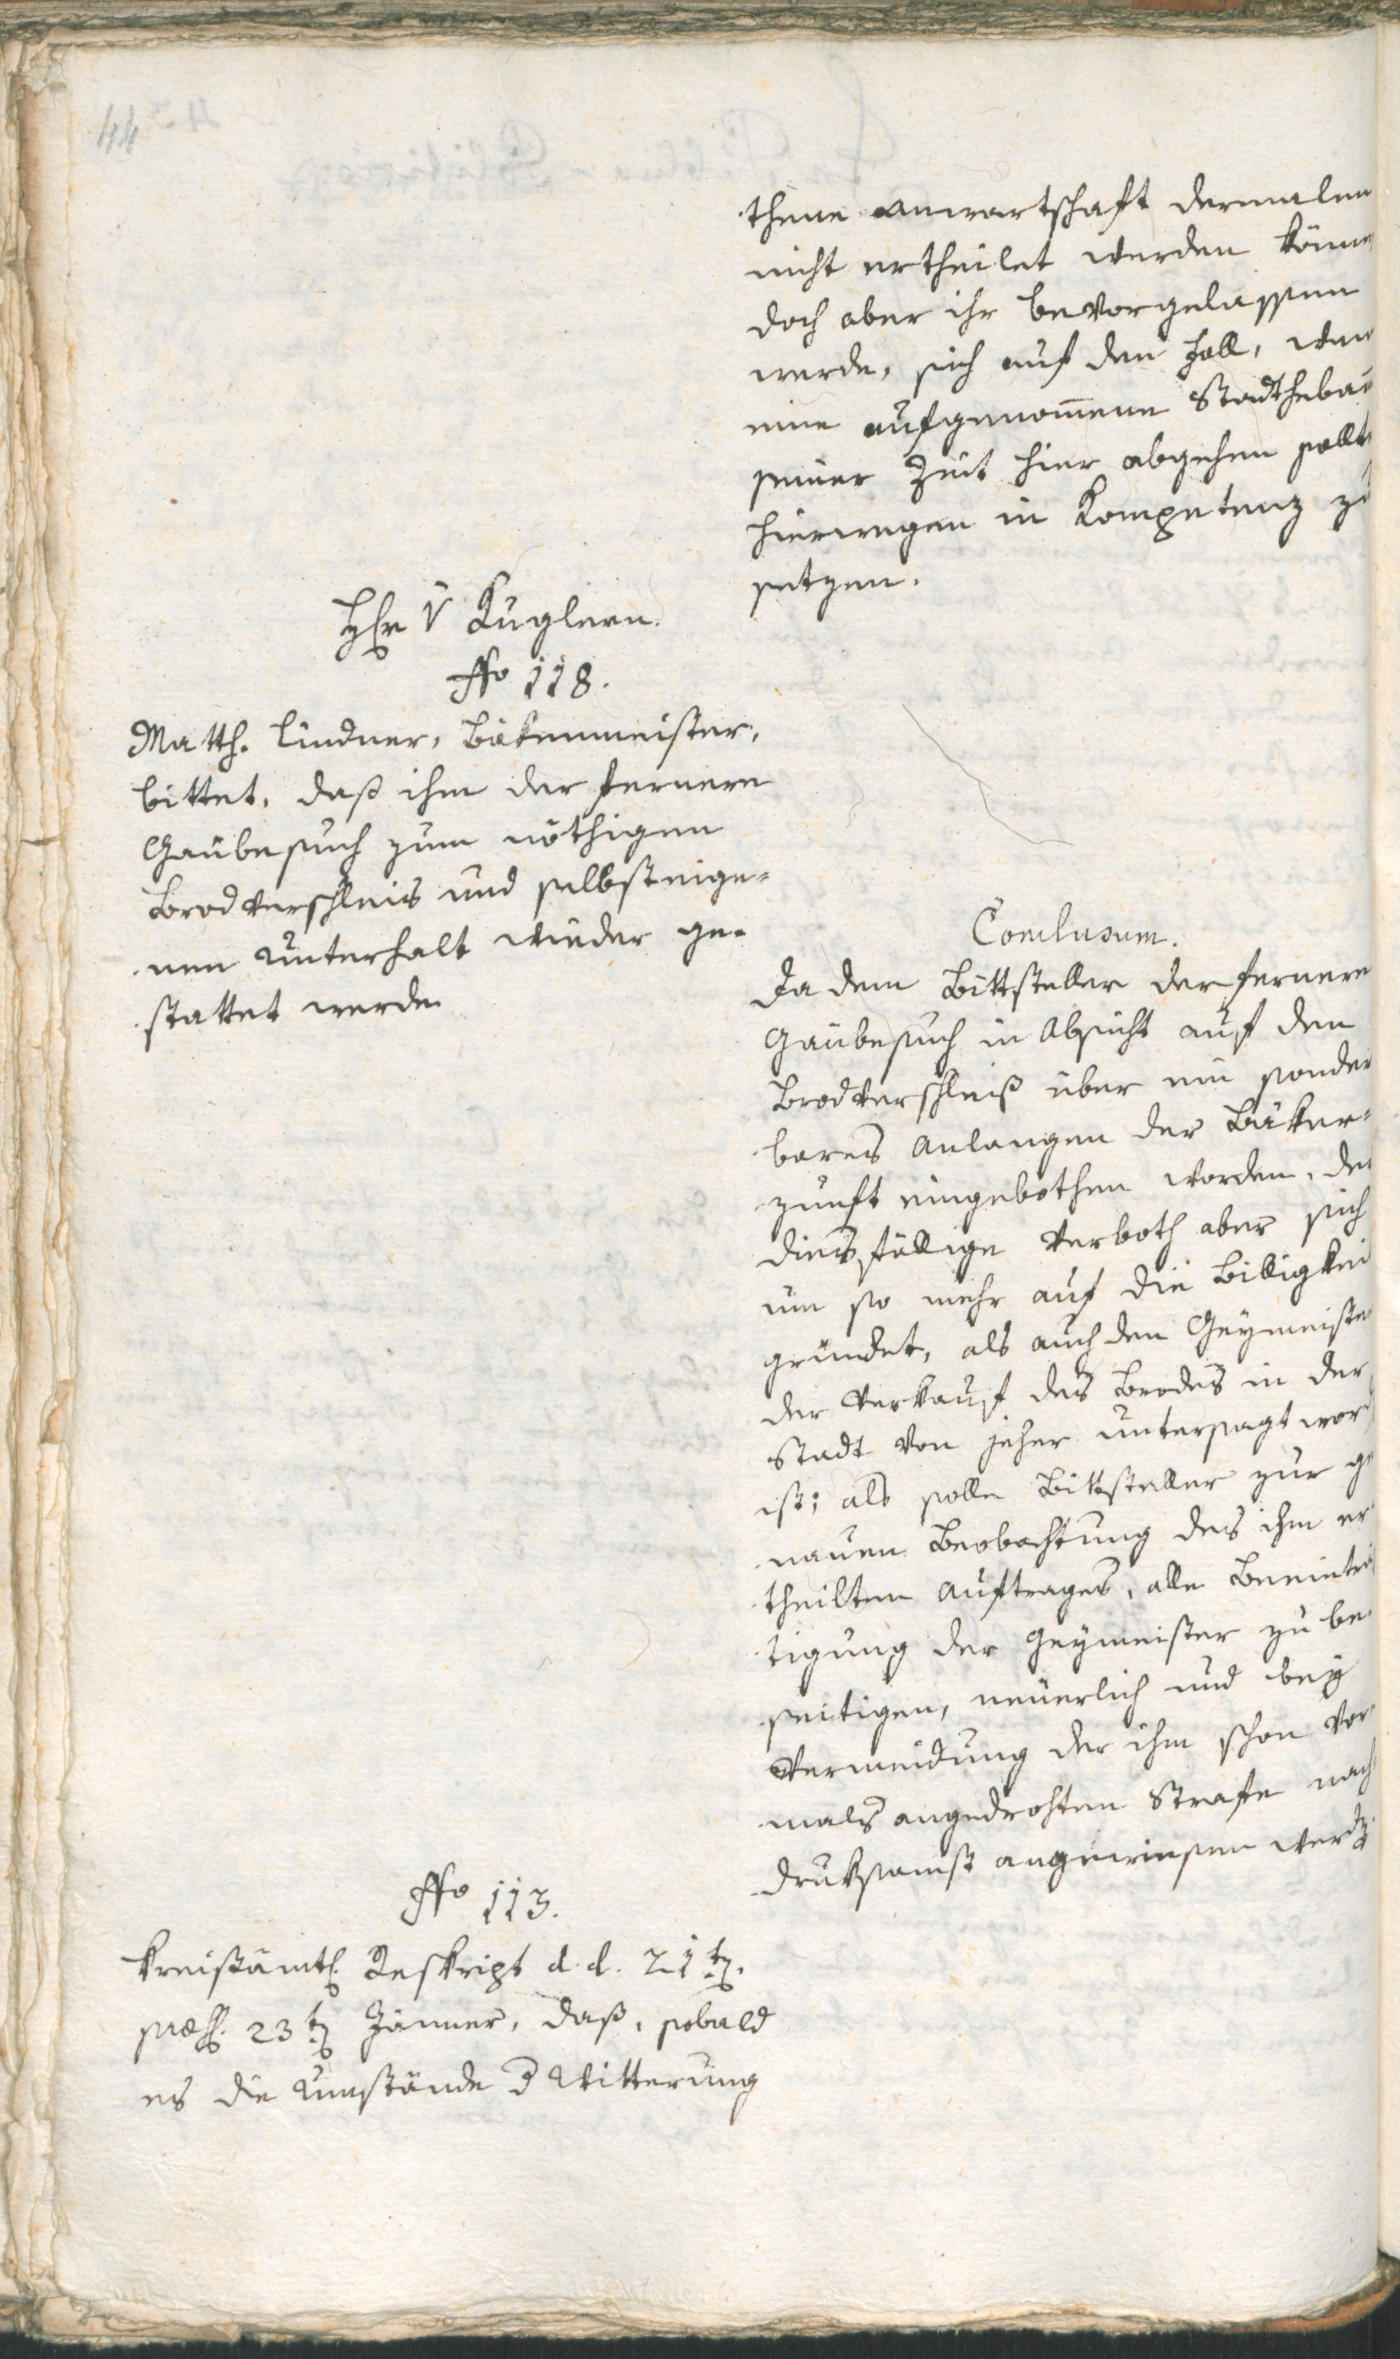 44
thene anwartschaft dermalen
nicht ertheilet werden könne
doch aber ihr bevorgelassen
werde, sich auf den Fall, wen
eine aufgenom̄ene Stadthebam̄
seiner Zeit hier abgehen sollte
hierwegen in Kompetenz zu
setzen.
H v Kuglern.
Nro 118.
Matth. Lindner, Bäkenmeister,
bittet, daß ihm der fernere
Gäubesuch zum nöthigen
Brodverschleis und selbsteige=
nen Unterhalt wieder ge=
stattet werde
Conclusum.
Da dem Bittsteller der fernere
Gäubesuch in Absicht auf den
Brodverschleiß über ein sonder
bares Anlangen der Bäker=
zunft eingebothen worden, der
diesfällige Verboth aber sich
um so mehr auf die Billigkeit
gründet, als auch den Geymeister
der Verkauf des Brodes in der
Stadt von jeher untersagt word
ist; als solle Bittsteller zur ge
nauen Beobachtung des ihm er
theilten Auftrages, alle Beeinträ
tigung der Geymeister zu be=
seitigen, neuerlich und bey
Vermeidung der ihm schon vor
mals angedrohten Strafe nach
druksamst angewiesen werdn
Nro 113.
Kreisämtl Reskript d. d. 21tn.
præs. 23tn Jänner, daß, sobald
es die Umstände d Witterung